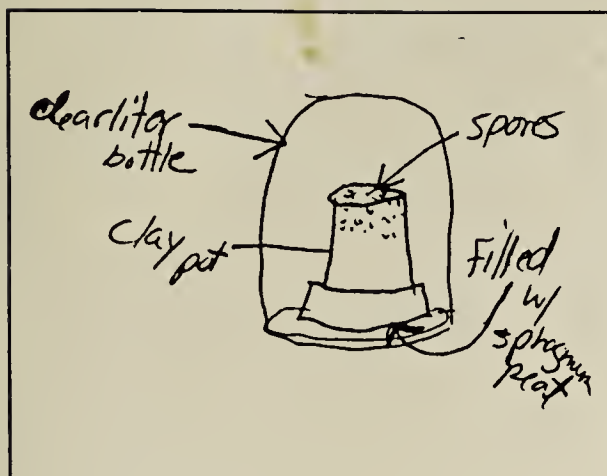 clear liter
bottle
spores
clay
pot
filled
w/
sphagnum
peat